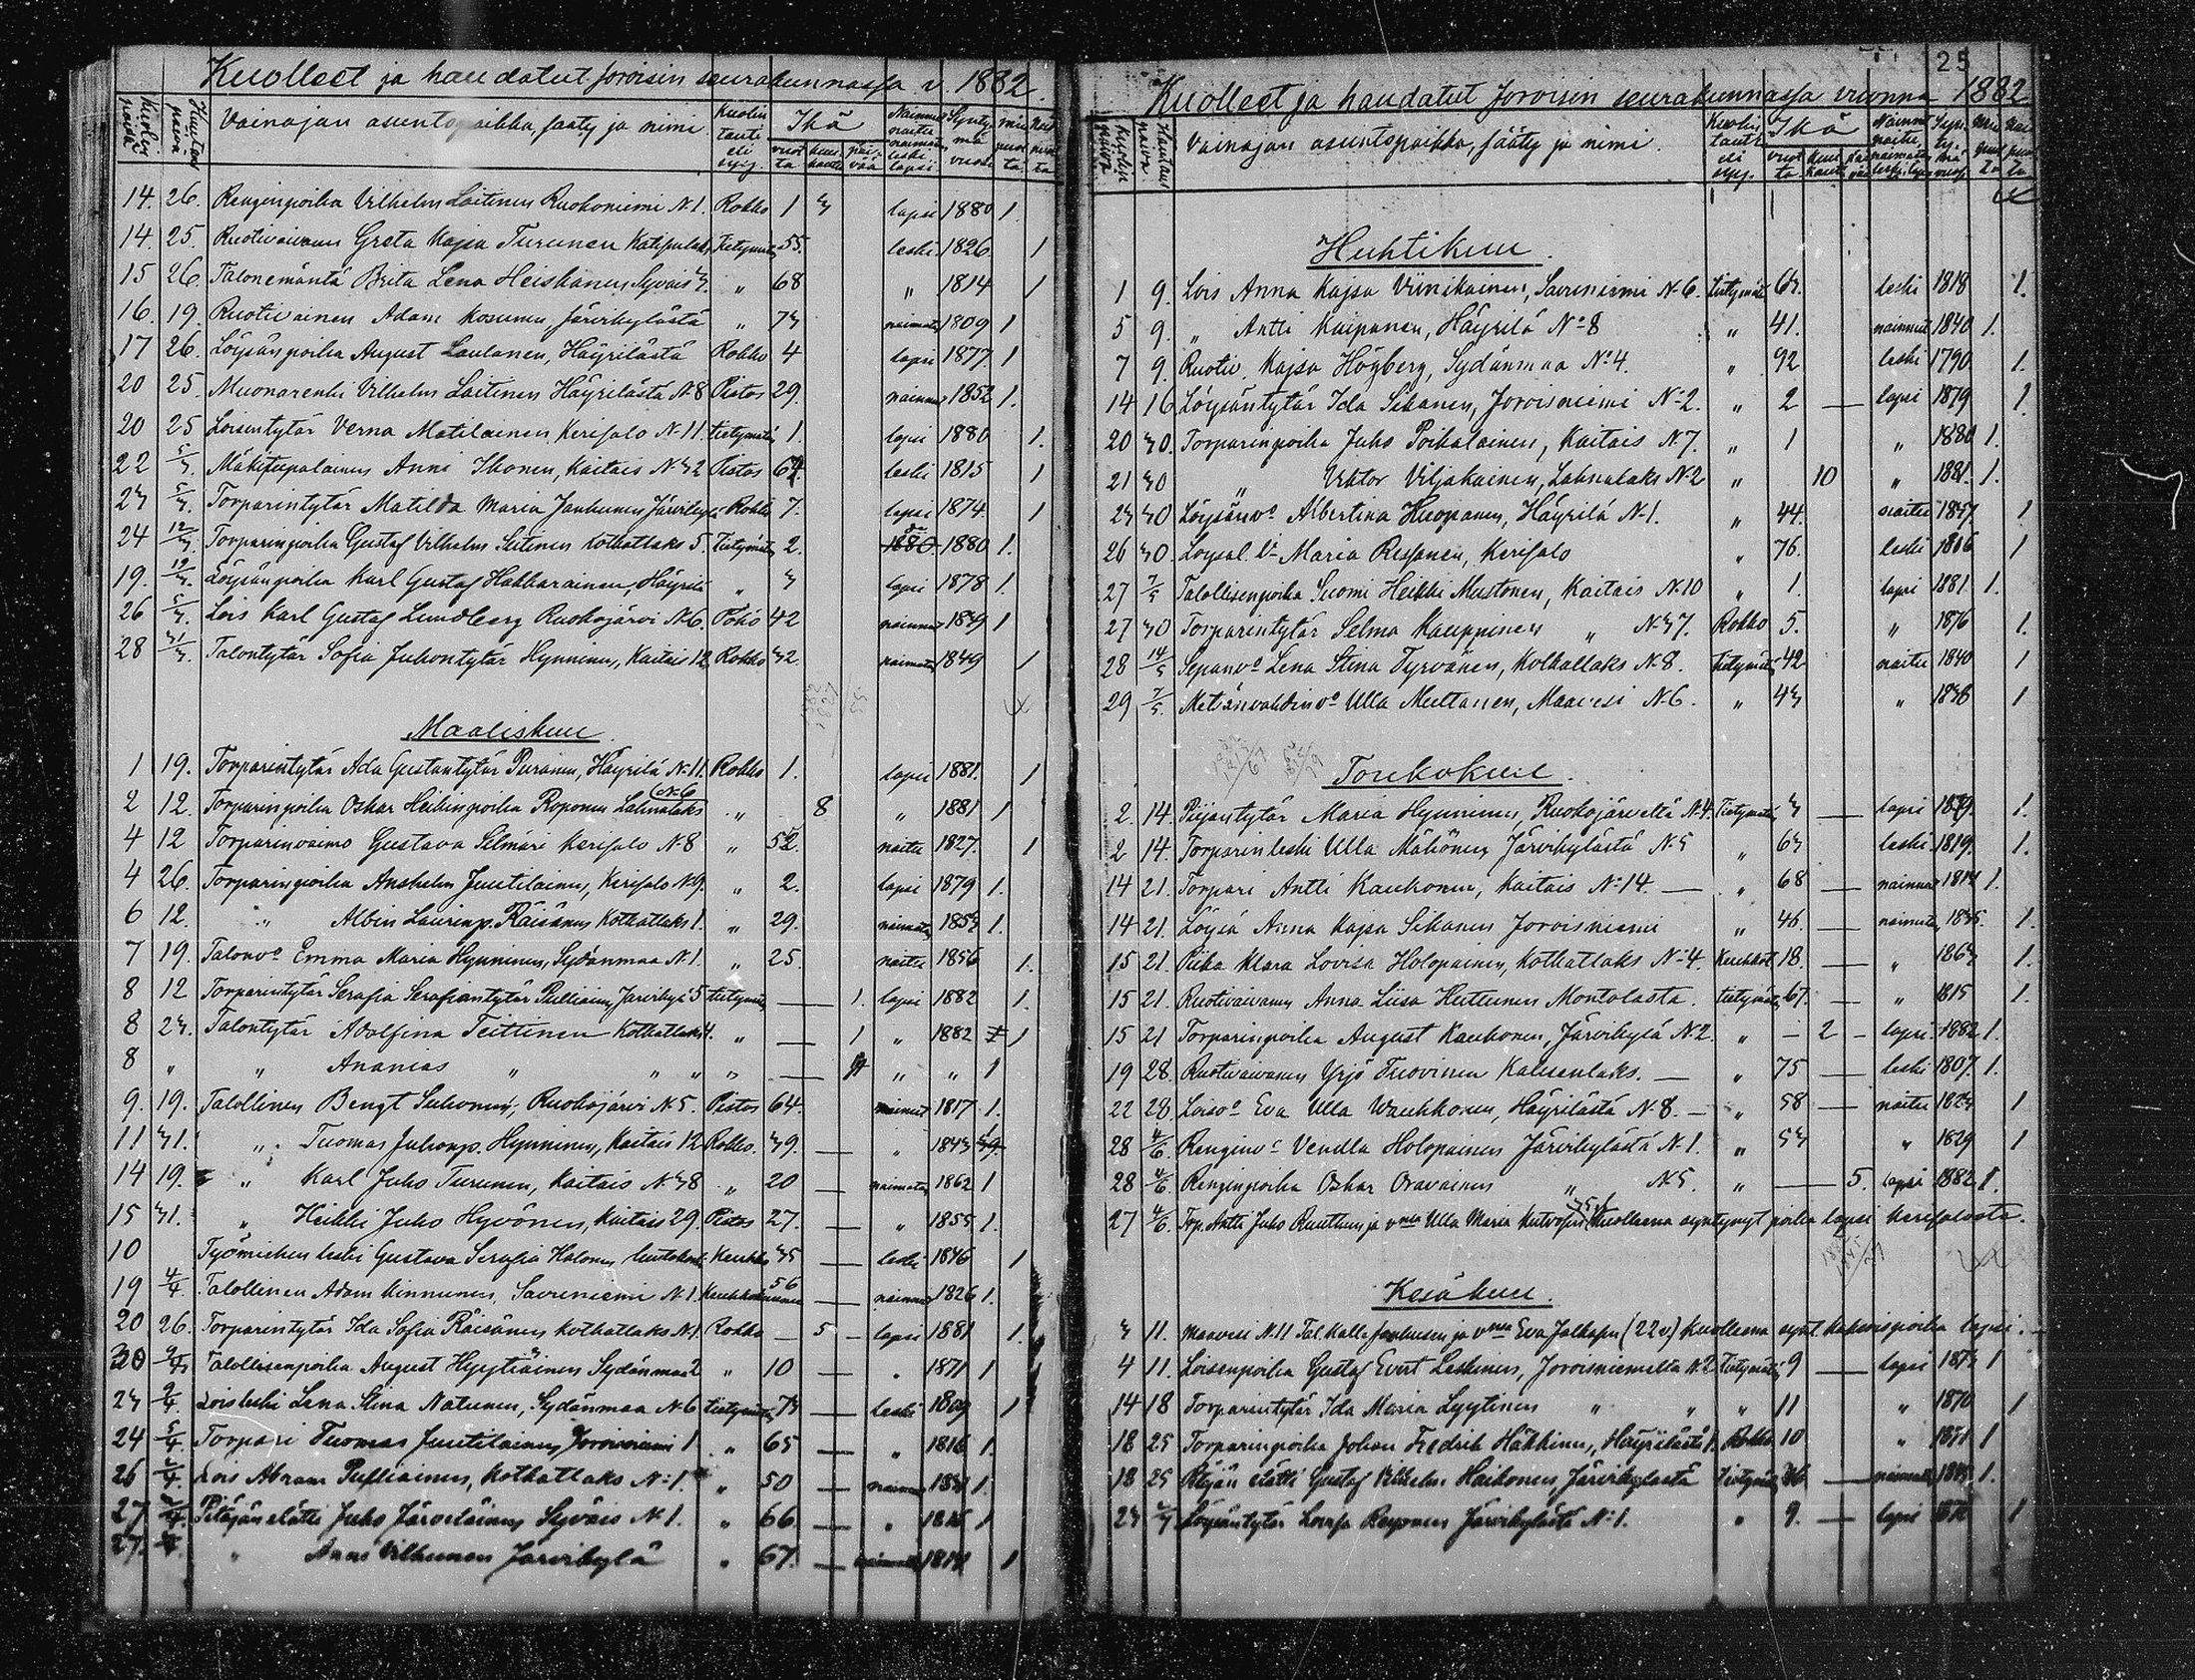 Kuolleet ja haudatut Joroisin seurakunnassa v. 1882.
Kuolin päivä Hautaus päivä Vainajan asuntopaikka, sääty ja nimi. Kuolin tauti eli syy. Ikä vuotta kuukautta päivää Nainut naitu naimaton leski lapsi Syntymä vuosi miespuolta naispuolta
14. 26. Renginpoika Vilhelm Laitinen Ruokoniemi N.1. Rokko 1 3 lapsi 1880 1.
14. 25. Ruotivaivanen Greta Kajsa Turunen Tietymätä 55. leski 1826. 1
15 26. Talonemäntä Brita Lena Heiskanen Syväis 3. " 68 " 1814 1
16. 19. Ruotivainen Adam Kosunen Järvikylästä " 73 naimaton 1809 1
17 26. Löysänpoika August Laulanen, Häyrilästä Rokko 4 lapsi 1877. 1
20 25. Muonarenki Vilhelm Laitinen Häyrilästä N.8 Pistos 29. nainut 1852 1.
20 25 Loisentytär Verna Matilainen Kerisalo N.11. tietymätä 1. lapsi 1880 1.
22 5/3. Mäkitupalainen Anni Ikonen, Kaitais N.32 Pistos 67. leski 1815 1
23 5/3. Torparintytär Matilda Maria Janhunen Järvikylä Rokko 7. lapsi 1874. 1
24 12/3. Torparinpoika Gustaf Vilhelm Kotkatlaks 5. Tietymätä 2. 1880 1880 1.
19. 12/3. Löysänpoika Karl Gustaf Hakkarainen, Häyrilä " 3 lapsi 1878 1.
26 5/3. Lois Karl Gustaf Lundberg Ruokojärvi N.6. Pöhö 42 nainut 1839 1
28 31/3. Talontytär Sofia Juhontytär Hynninen, Kaitais 12 Rokko 32. naimaton 1849 1
Maaliskuu.
1 19. Torparintytär Ada Gustantytär Puranen, Häyrilä N.11. Rokko 1. lapsi 1881. 1
2 12. Torparinpoika Oskar Heikinpoika Roponen Lahnalaks N.6 " 8 " 1881 1
4 12 Torparinvaimo Gustava Kerisalo N.8 " 52. naitu 1827. 1
4 26. Torparinpoika Anshelm Juutilainen, Kerisalo N.9. " 2. lapsi 1879 1.
6 12. " Albin Laurinp. Räisänen Kotkatlaks 1. " 29. naimaton 1853 1.
7 19. Talonvo Emma Maria Hynninen, Sydänmaa N.1. " 25. naitu 1856 1.
8 12 Torparintytär Serafia Serafiantytär Pulliainen Järvikylä 5 tietymätä — 1. lapsi 1882 1.
8 23. Talontytär Adolfina Teittinen Kotkatlaks 4. " — 1 " 1882 1
8 " " Ananias " " " " — " " 1
9. 19. Talollinen Bengt Suhonen, Ruokojärvi N.5. Pistos 64. nainut 1817 1.
11 31. " Tuomas Juhonp. Hynninen, Kaitais 12 Rokko. 39. — " 1843
14 19. " Karl Juho Turunen, Kaitais N.38 " 20 — naimaton 1862 1
15 31. " Heikki Juho Hyvönen, Kaitais 29. Pistos 27. — " 1855 1.
10 Työmiehen leski Gustava Serafia Halonen Keuhko 35 — leski 1846 1
19 4/4. Talollinen Adam Kinnunen, Savuniemi N.1. 56 — nainut 1826 1.
20 26. Torparintytär Ida Sofia Räisänen Kotkatlaks N.1. Rokko — 5 — lapsi 1881 1.
30 Talollisenpoika August Hyytiäinen Sydänmaa 2 " 10 — " 1871 1
23 9/4. Loisleski Lena Stina Natunen, Sydänmaa N.6 tietymätä 73 — leski 1809 1
24 5/4. Torpari Tuomas Juutilainen Joroisniemi 1 " 65 — " 1816 1.
26 Lois Abram Pulliainen, Kotkatlaks N:1. " 50 — 1.
27 Pitäjänelätti Juho Järveläinen Syväis N.1. " 66 — " 1816 1
27. " Anni Vilhunen Järvikylä " 67. — naimaton 1
25
Kuolleet ja haudatut Joroisin seurakunnassa vuonna 1882
Kuolin päivä Hautaus päivä Vainajan asuntopaikka, sääty ja nimi. Kuolin tauti eli syy. Ikä vuotta kuukautta
Huhtikuu.
1 9. Lois Anna Kajsa Viinikainen, Savuniemi N.6. tietymätä 63. leski 1818 1.
5 9. " Antti Kaipanen, Häyrilä No 8 " 41. nainut 1840 1.
7 9. Ruotiv. Kajsa Högberg, Sydänmaa No 4. " 92 leski 1790 1.
14 16 Löysäntytär Ida Sikanen, Joroisniemi No 2. " 2 — lapsi 1879 1.
20 30. Torparinpoika Juho Poikalainen, Kaitais N.7. " 1 " 1880 1.
21 30 " Viktor Viljakainen, Lahnalaks N.2 " 10 " 1881. 1.
23 30 Löysänvo Albertina Huopanen, Häyrilä N.1. " 44. naitu 1837 1
26 30. Maria Ressanen, Kerisalo " 76. leski 1806 1
27 7/5 Talollisenpoika Suomi Heikki Mustonen, Kaitais N.10 " 1. lapsi 1881 1.
27 30 Torparintytär Selma Kauppinen " N.37. Rokko 5. " 1876 1.
28 14/5 Sepanvo Lena Stina Tyrvänen, Kotkatlaks N.8. tietymätä 42 naitu 1840 1
29 7/5. Metsänvahdinvo Ulla Multanen, Maavesi N.6. " 43 " 1838 1
Toukokuu.
2. 14. Piijantytär Maria Hynninen, Ruokojärveltä N.4. Tietymätä 3 — lapsi 1879. 1.
2 14. Torparinleski Ulla Mähönen Järvikylästä N.5 " 63 leski 1819. 1.
14 21. Torpari Antti Kauhonen, Kaitais No 14. — " 68 — nainut 1814 1.
14 21. Löysä Anna Kajsa Sikanen Joroisniemi " 46. — 1.
15 21. Piika Klara Lovisa Holopainen, Kotkatlaks No 4. 18. — " 1863 1.
15 21. Ruotivaivanen Anna Liisa Huttunen Montolasta. tietymätä 67. — " 1815 1.
15 21 Torparinpoika August Kauhonen, Järvikylä N.2. " — 2 — lapsi 1882 1.
19 28. Ruotivaivanen Yrjö Tuovinen — " 75 — leski 1807. 1.
22 28. Loisvo Eva Ulla Wauhkonen, Häyrilästä N.8. — " 58 — naitu 1823 1
28 4/6. Renginvo Vendla Holopainen Järvikylästä N.1. " 53 " 1829 1
28 4/6. Renginpoika Oskar Oravainen " N.5. " — 5. lapsi 1882 1.
27 4/6. Trp. Antti Juho Ruuttunen ja vmon Ulla Maria Kutvosen 35 kuolleena syntynyt poika lapsi Kerisalosta.
Kesäkuu.
3 11. Maavesi N.11 Tal. Kalle Janhusen ja vmon Eva Jalkasen (22 v.) kuolleena synt. kaksoispoika lapsi.
4 11. Loisenpoika Gustaf Evert Leskinen, Joroisniemeltä N.2 Tietymätä 9 — lapsi 1873 1
14 18 Torparintytär Ida Maria Lyytinen " " " 11 " 1870 1
18 25 Torparinpoika Johan Fredrik Häkkinen, Häyrilästä 1. Rokko 10 " 1871 1
18 25 Pitäjän elätti Gustaf Vilhelm Haikonen, Järvikylästä tietymätä 36 — 1.
23 Löysäntytär Lovisa Reponen Järvikylästä N:1. " 9. — lapsi 1